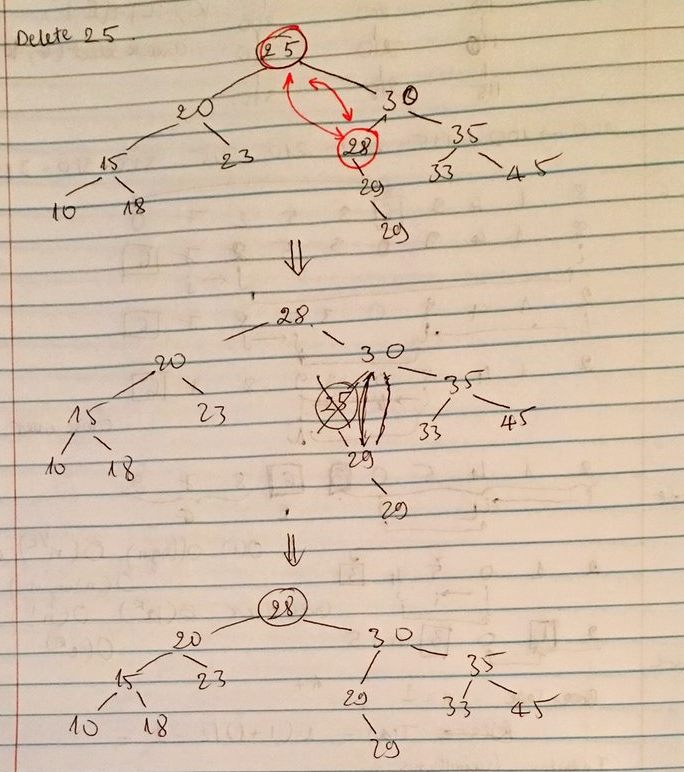 Delete 25.
25
20 30
15 23 28 35
10 18 29 33 45
29
28
20 30
15 23 25 35
10 18 29 33 45
29
28
20 30
15 23 29 35
10 18 29 33 45